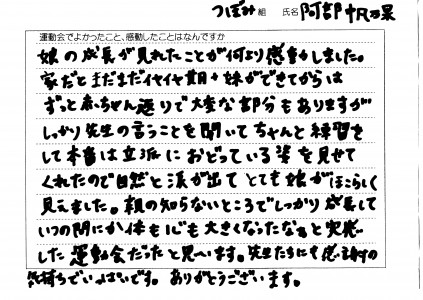 つぼみ 組 氏名 阿部
運動会でよかったこと、感動したことはなんですか
娘の成長が見れたことが何より感動しました。
家だとまだまだイヤイヤ期+妹ができてからは
ずっと赤ちゃん返りで大変な部分もありますが
しっかり先生の言うことを聞いてちゃんと練習を
して本番は立派におどっている姿を見せて
くれたので自然と涙が出てとても娘がほこらしく
見えました。親の知らないところでしっかり成長して
いつの間にか体も心も大きくなったなぁと実感
した運動会だったと思います。先生たちにも感謝の
気持ちでいっぱいです。ありがとうございます。